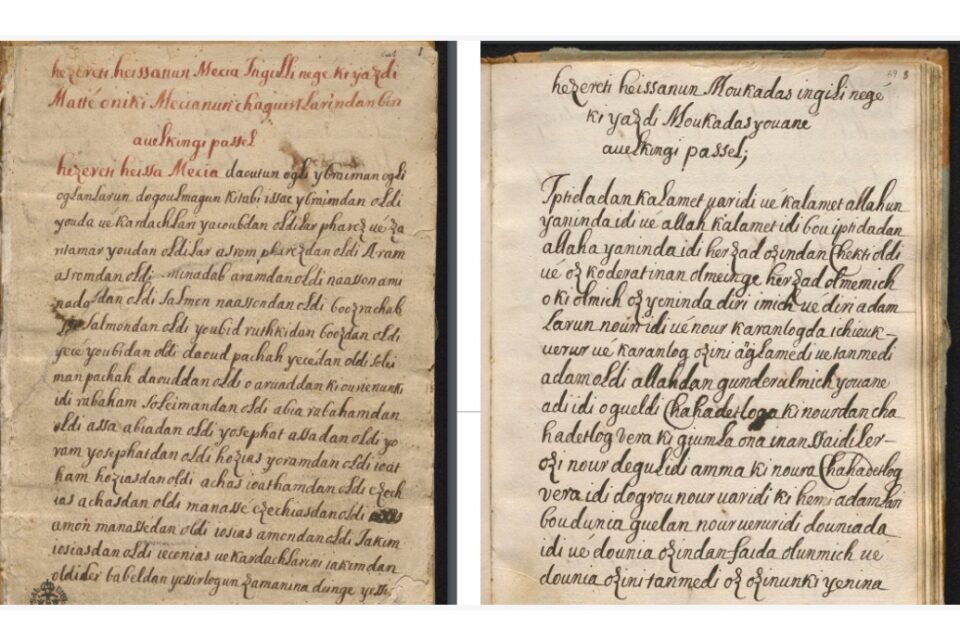 hezereti heissanun Mecia Ingilli nege ki yazdi
Matté oniki Mecianun chaguirtlarindan biri
auelkingi passel
hezereti heissa Mecia daoutun ogli ybraiman ogli
oglanlarun dogoulmagun kitabi issac ybraimdan oldi
youda ué kardachlari yacoubdan oldilar pharez ué za
ntamar youdan oldilar asrom pherezdan oldi Aram
asromdan oldi minadab aramdan oldi naasson ami
nadabdan oldi salmon naassondan oldi booz rachab
salmondan oldi youbid ruthkidan boozdan oldi
yecé youbidan oldi daoud pachah yecédan oldi solei
man pachah daouddan oldi o aruaddan ki ourienunki
idi rabaham soleimandan oldi abia rabahamdan
oldi assa abiadan oldi yosephat assadan oldi yo
ram yosephatdan oldi hozias yoramdan oldi ioat
ham hoziasdan oldi achas ioathamdan oldi ezech
ias achasdan oldi manassé ezechiasdan oldi
amon manassedan oldi iosias amondan oldi Iakim
iosiasdan oldi ieconias ue kardachlarini iakimdan
oldiler babeldan yessirlogun zamanina dunge yessi
69 1
hezereti heissanun Moukadas ingili negé
ki yazdi Moukadas youane
auelkingi passel;
Iptidadan kalamet uaridi ué kalamet allahun
yaninda idi ué allah kalamet idi bou iptidadan
allaha yaninda idi herzad ozindan Chekti oldi
ué oz koderatinan olmeinge herzad olmemich
o ki olmich oz yeninda diri imich ué diri adam
larun nouridi ué nour karanlogda ichieuk-
uerur ué karanlog ozini aglamedi ue tanmedi
adam oldi allahdan gunderalmich youane
adi idi o gueldi Chahadetloga ki nourdan cha
hadetlog vera ki gjumla ona inanssaidiler-
ozi nour degulidi amma ki noura Chahadetlog
vera idi dogrou nour uaridi ki hemi adamlari
bou dunia guelan nour ueruridi douniada
idi ué dounia ozindan saida olunmich ue
dounia ozini tanmedi oz ozinunki yenina